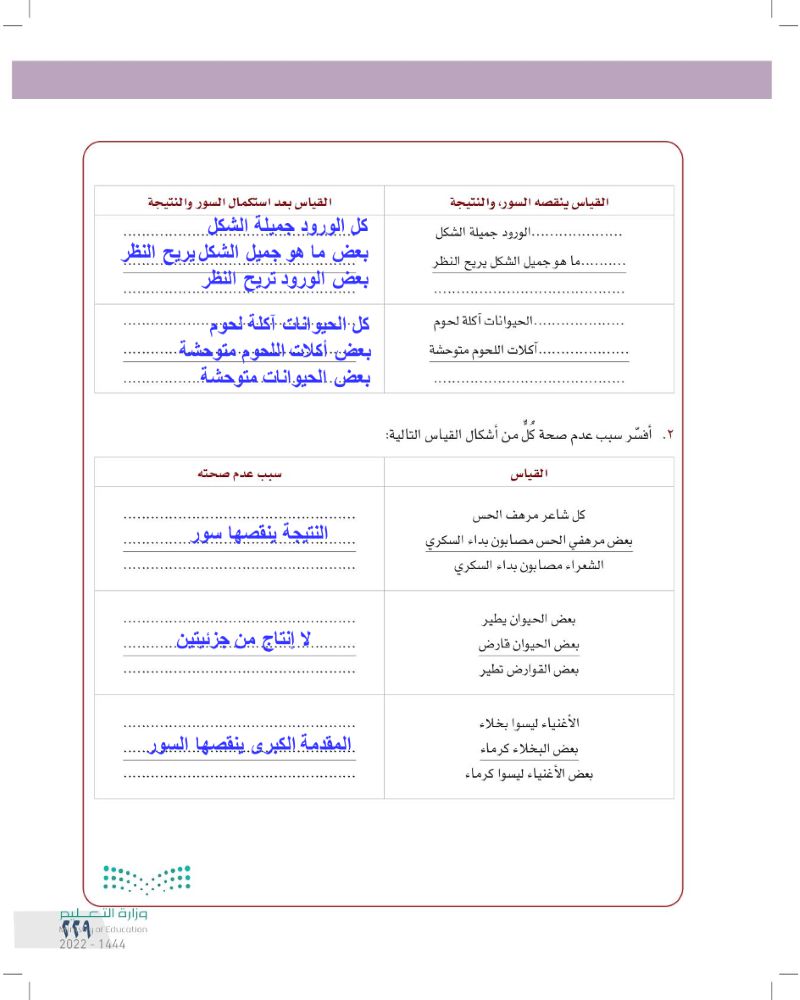 القياس ينقصه السور، والنتيجة
القياس بعد استكمال السور والنتيجة
....................الورود جميلة الشكل
..........ما هو جميل الشكل يريح النظر
..........................................
كل الورود جميلة الشكل
بعض ما هو جميل الشكل يريح النظر
بعض الورود تريح النظر
....................الحيوانات آكلة لحوم
....................آكلات اللحوم متوحشة
..........................................
كل الحيوانات آكلة لحوم
بعض أكلات اللحوم متوحشة
بعض الحيوانات متوحشة
٢. أفسّر سبب عدم صحة كُلٌّ من أشكال القياس التالية:
القياس
سبب عدم صحته
كل شاعر مرهف الحس
بعض مرهفي الحس مصابون بداء السكري
الشعراء مصابون بداء السكري
النتيجة ينقصها سور
بعض الحيوان يطير
بعض الحيوان قارض
بعض القوارض تطير
لا إنتاج من جزئيتين
الأغنياء ليسوا بخلاء
بعض البخلاء كرماء
بعض الأغنياء ليسوا كرماء
المقدمة الكبرى ينقصها السور
وزارة التعليم
Ministry of Education
٢٢٩
2022 - 1444